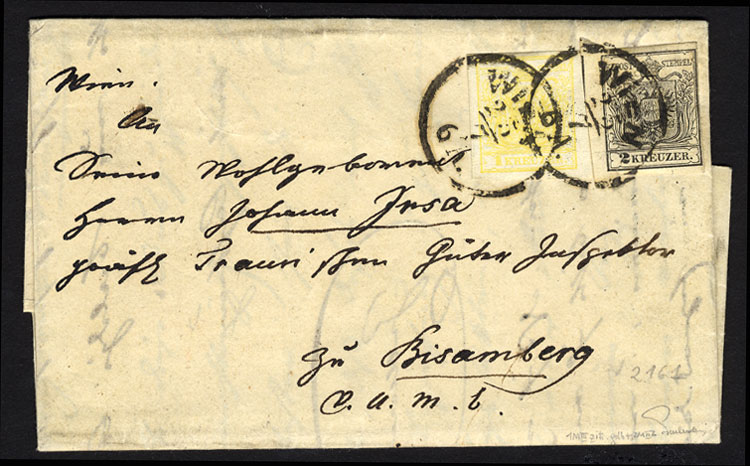 Wien.
An
Seine Wohlgeboren
Herrn Johann Jesa
gräfl. Traun'schen Güter Inspektor
zu Bisamberg
v. a. m. b.
WIEN
WIEN
1 KREUZER.
STEMPEL
2 KREUZER.
2161